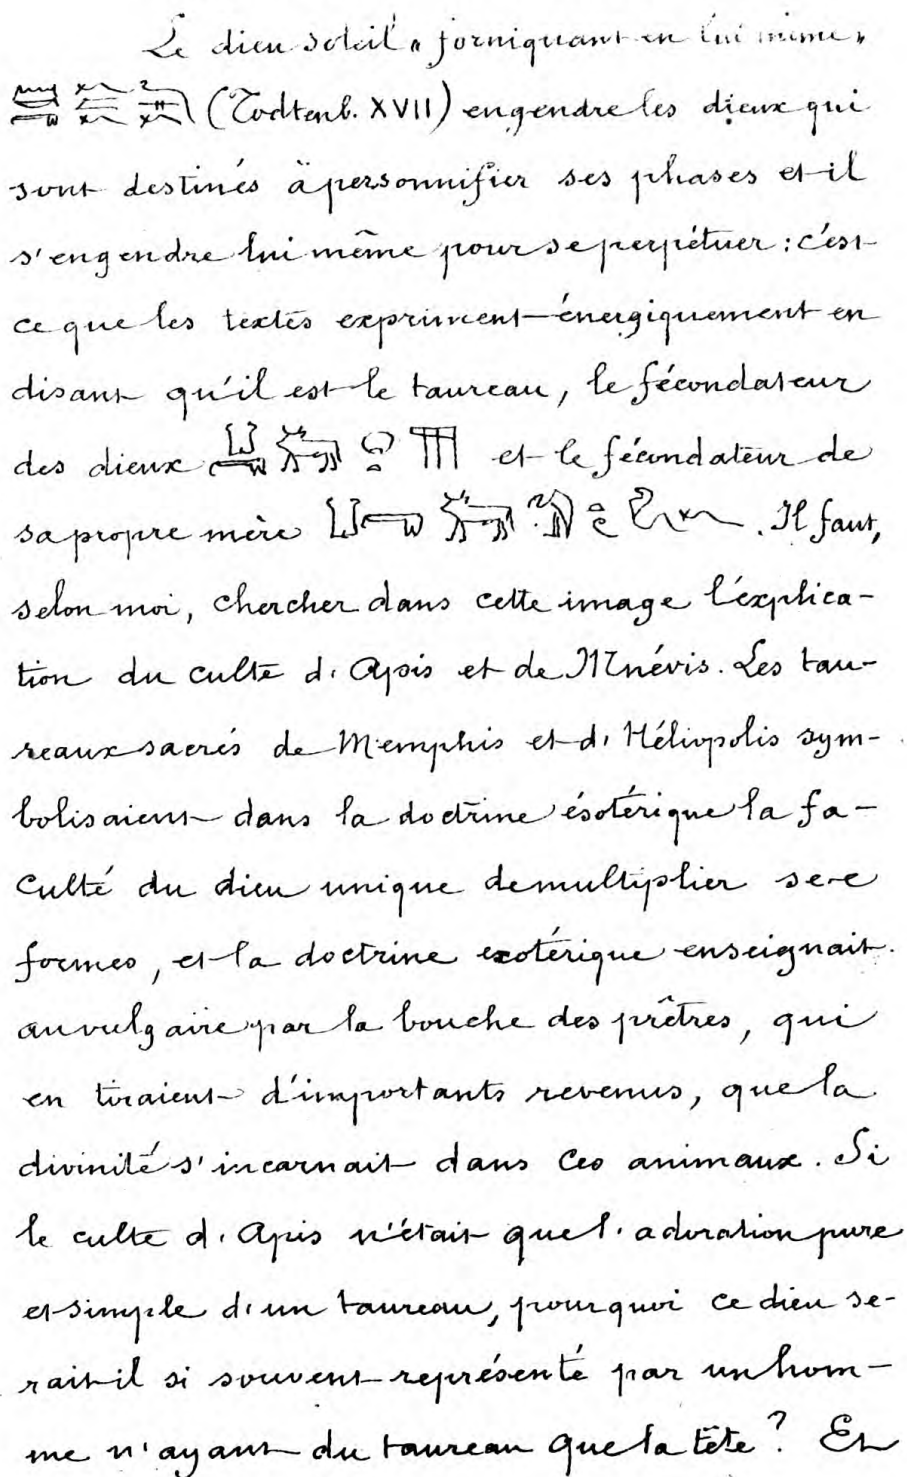 Le dieu soleil « forniquant en lui même »
(Todtenb. XVII) engendre les dieux qui
sont destinés à personnifier ses phases et il
s'engendre lui même pour se perpétuer : c'est
ce que les textes expriment énergiquement en
disant qu'il est le taureau, le fécondateur
des dieux et le fécondateur de
sa propre mère . Il faut,
selon moi, chercher dans cette image l'explica-
tion du culte d'Apis et de Mnévis. Les tau-
reaux sacrés de Memphis et d'Héliopolis sym-
bolisaient dans la doctrine ésotérique la fa-
culté du dieu unique de multiplier ses
formes, et la doctrine exotérique enseignait
au vulgaire par la bouche des prêtres, qui
en tiraient d'importants revenus, que la
divinité s'incarnait dans ces animaux. Si
le culte d'Apis n'était que l'adoration pure
et simple d'un taureau, pourquoi ce dieu se-
rait-il si souvent représenté par un hom-
me n'ayant du taureau que la tête ? Et